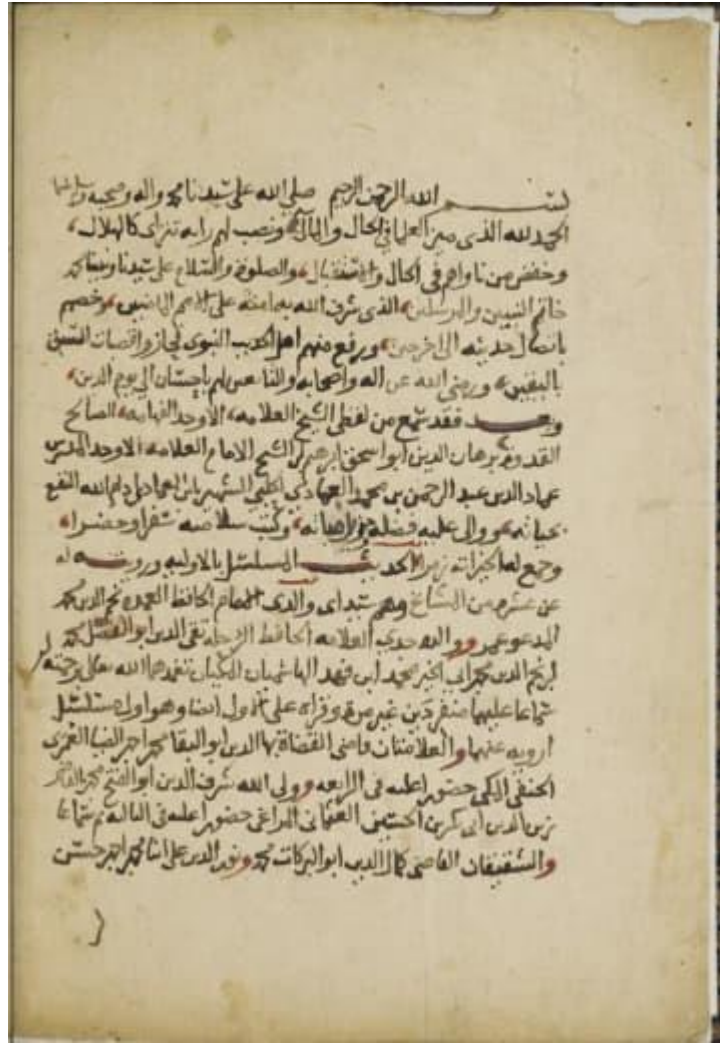 بسم الله الرحمن الرحيم صلى الله على سيدنا محمد واله وصحبه وسلم
الحمد لله الذى ميز العلما فى الحال والمآل ونصب لهم رايه تتراى كالهلال
وخفض من ناواهم فى الحال والاستقبال والصلوة والسلام على سيدنا ونبينا محمد
خاتم النبيين والمرسلين الذى شرف الله به امته على الامم الماضين وخصهم
باتصال حديثه الى اخرين ورفع منهم اهل الحديث النبوى فحازوا قصبات السبق
باليقين ورضى الله عن اله واصحابه والتابعين لهم باحسان الى يوم الدين
وبعد فقد سمع من لفظى الشيخ العلامه الاوحد الفهامه الصالح
القدوة برهان الدين ابو اسحق ابرهيم بن الشيخ الامام العلامه الاوحد المدرس
عماد الدين عبد الرحمن بن محمد العمادى الحلبى الشهير بابن العمادى ادام الله النفع
بحياته ووالى عليه فضله وكتب سلامته سفرا وحضرا
وجمع له الحديث المسلسل بالاوليه ورويته له
عن عشره من المشايخ وهم سيداى والدى الامام الحافظ العمده نجم الدين محمد
المدعو عمر ووالده جدى العلامه الحافظ الرحله تقى الدين ابو الفضل محمد
بن نجم الدين محمد ابى الخير محمد ابن فهد الهاشميان المكيان تغمدهما الله تعالى برحمته
سماعا عليهما منفردين غير مرة وقراة على الاول ايضا وهو اول مسلسل
ارويه عنهما والعلامتان قاضى القضاة بها الدين ابو البقا محمد بن احمد بن الضيا العمرى
الحنفى المكى حضورا عليه فى الرابعه وولى الله شرف الدين ابو الفتح محمد بن القاضى
زين الدين ابى بكر بن الحسين العثمانى المراغى حضورا عليه فى الثالثه ثم سماعا
والشقيقان القاضى كمال الدين ابو البركات محمد ونور الدين على ابنا محمد بن احمد بن حسن